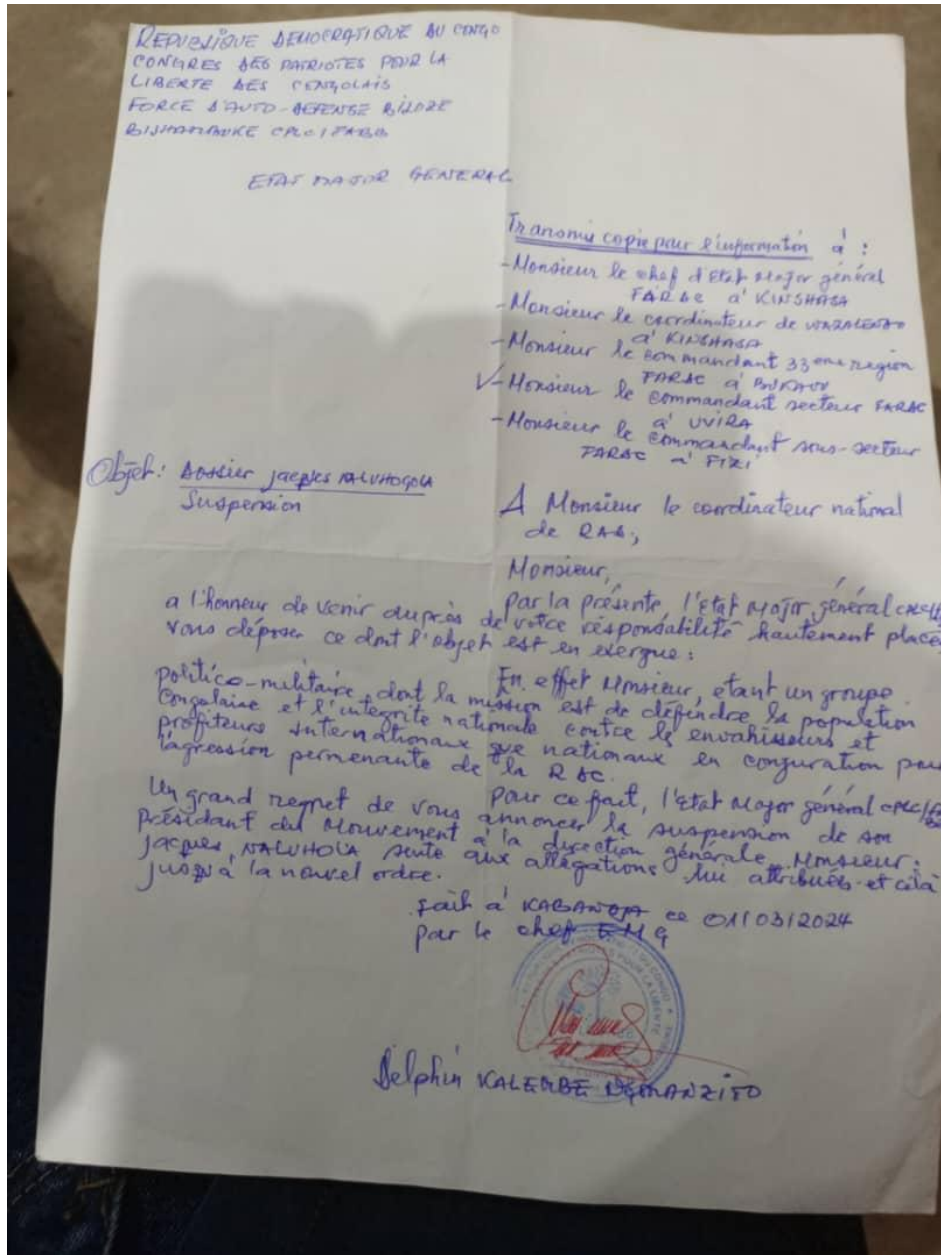 REPUBLIQUE DEMOCRATIQUE DU CONGO
CONGRES DES PATRIOTES POUR LA
LIBERTE DES CONGOLAIS
FORCE D'AUTO-DEFENSE BILOZE
BISHAMBUKE CPLC/FABB
ETAT MAJOR GENERAL
Transmis copie pour l'information à :
- Monsieur le chef d'Etat Major général
FARDC à KINSHASA
- Monsieur le coordinateur de WAZALENDO
à KINSHASA
- Monsieur le commandant 33eme region
FARDC à BUKAVU
- Monsieur le commandant secteur FARDC
à UVIRA
- Monsieur le commandant sous-secteur
FARDC à FIZI
Objet : Dossier jacques NALUHOGOLA
Suspension
A Monsieur le coordinateur national
de
Monsieur,
Par la présente, l'etat Major général
a l'honneur de venir auprès de votre résponsabilité hautement placée
vous déposer ce dont l'objet est en exergue :
En effet Monsieur, etant un groupe
politico-militaire dont la mission est de défendre la population
Congolaise et l'integrité nationale contre les envahisseurs et
profiteurs internationaux que nationaux en conjuration pour
l'agression permenante de la RDC.
Pour ce fait, l'etat Major général
Un grand regret de vous annoncer la suspension de son
Présidant du Mouvement à la direction générale, Monsieur :
jacques NALUHOLA suite aux allégations lui attribués et celà
jusqu'à la nouvel ordre.
Fait à ce 01/03/2024
par le chef EMG
Delphin KALEMBE